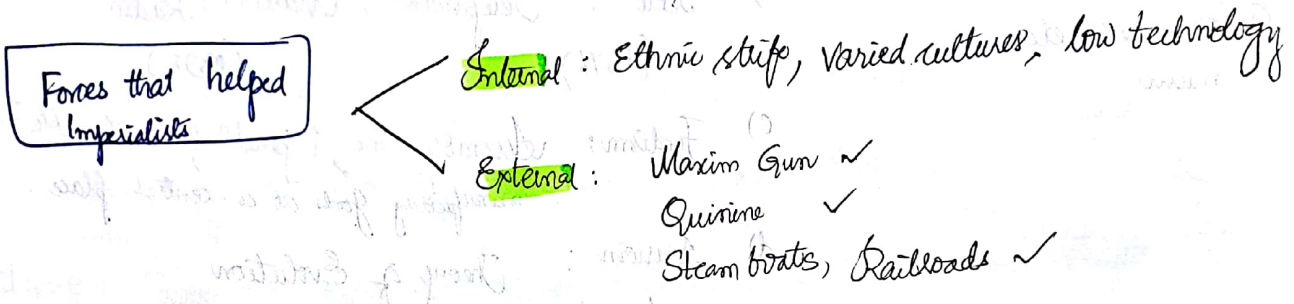 Forces that helped
Imperialists
Internal : Ethnic strife, varied cultures, low technology
External : Maxim Gun ✓
Quinine ✓
Steam boats, Railroads ✓